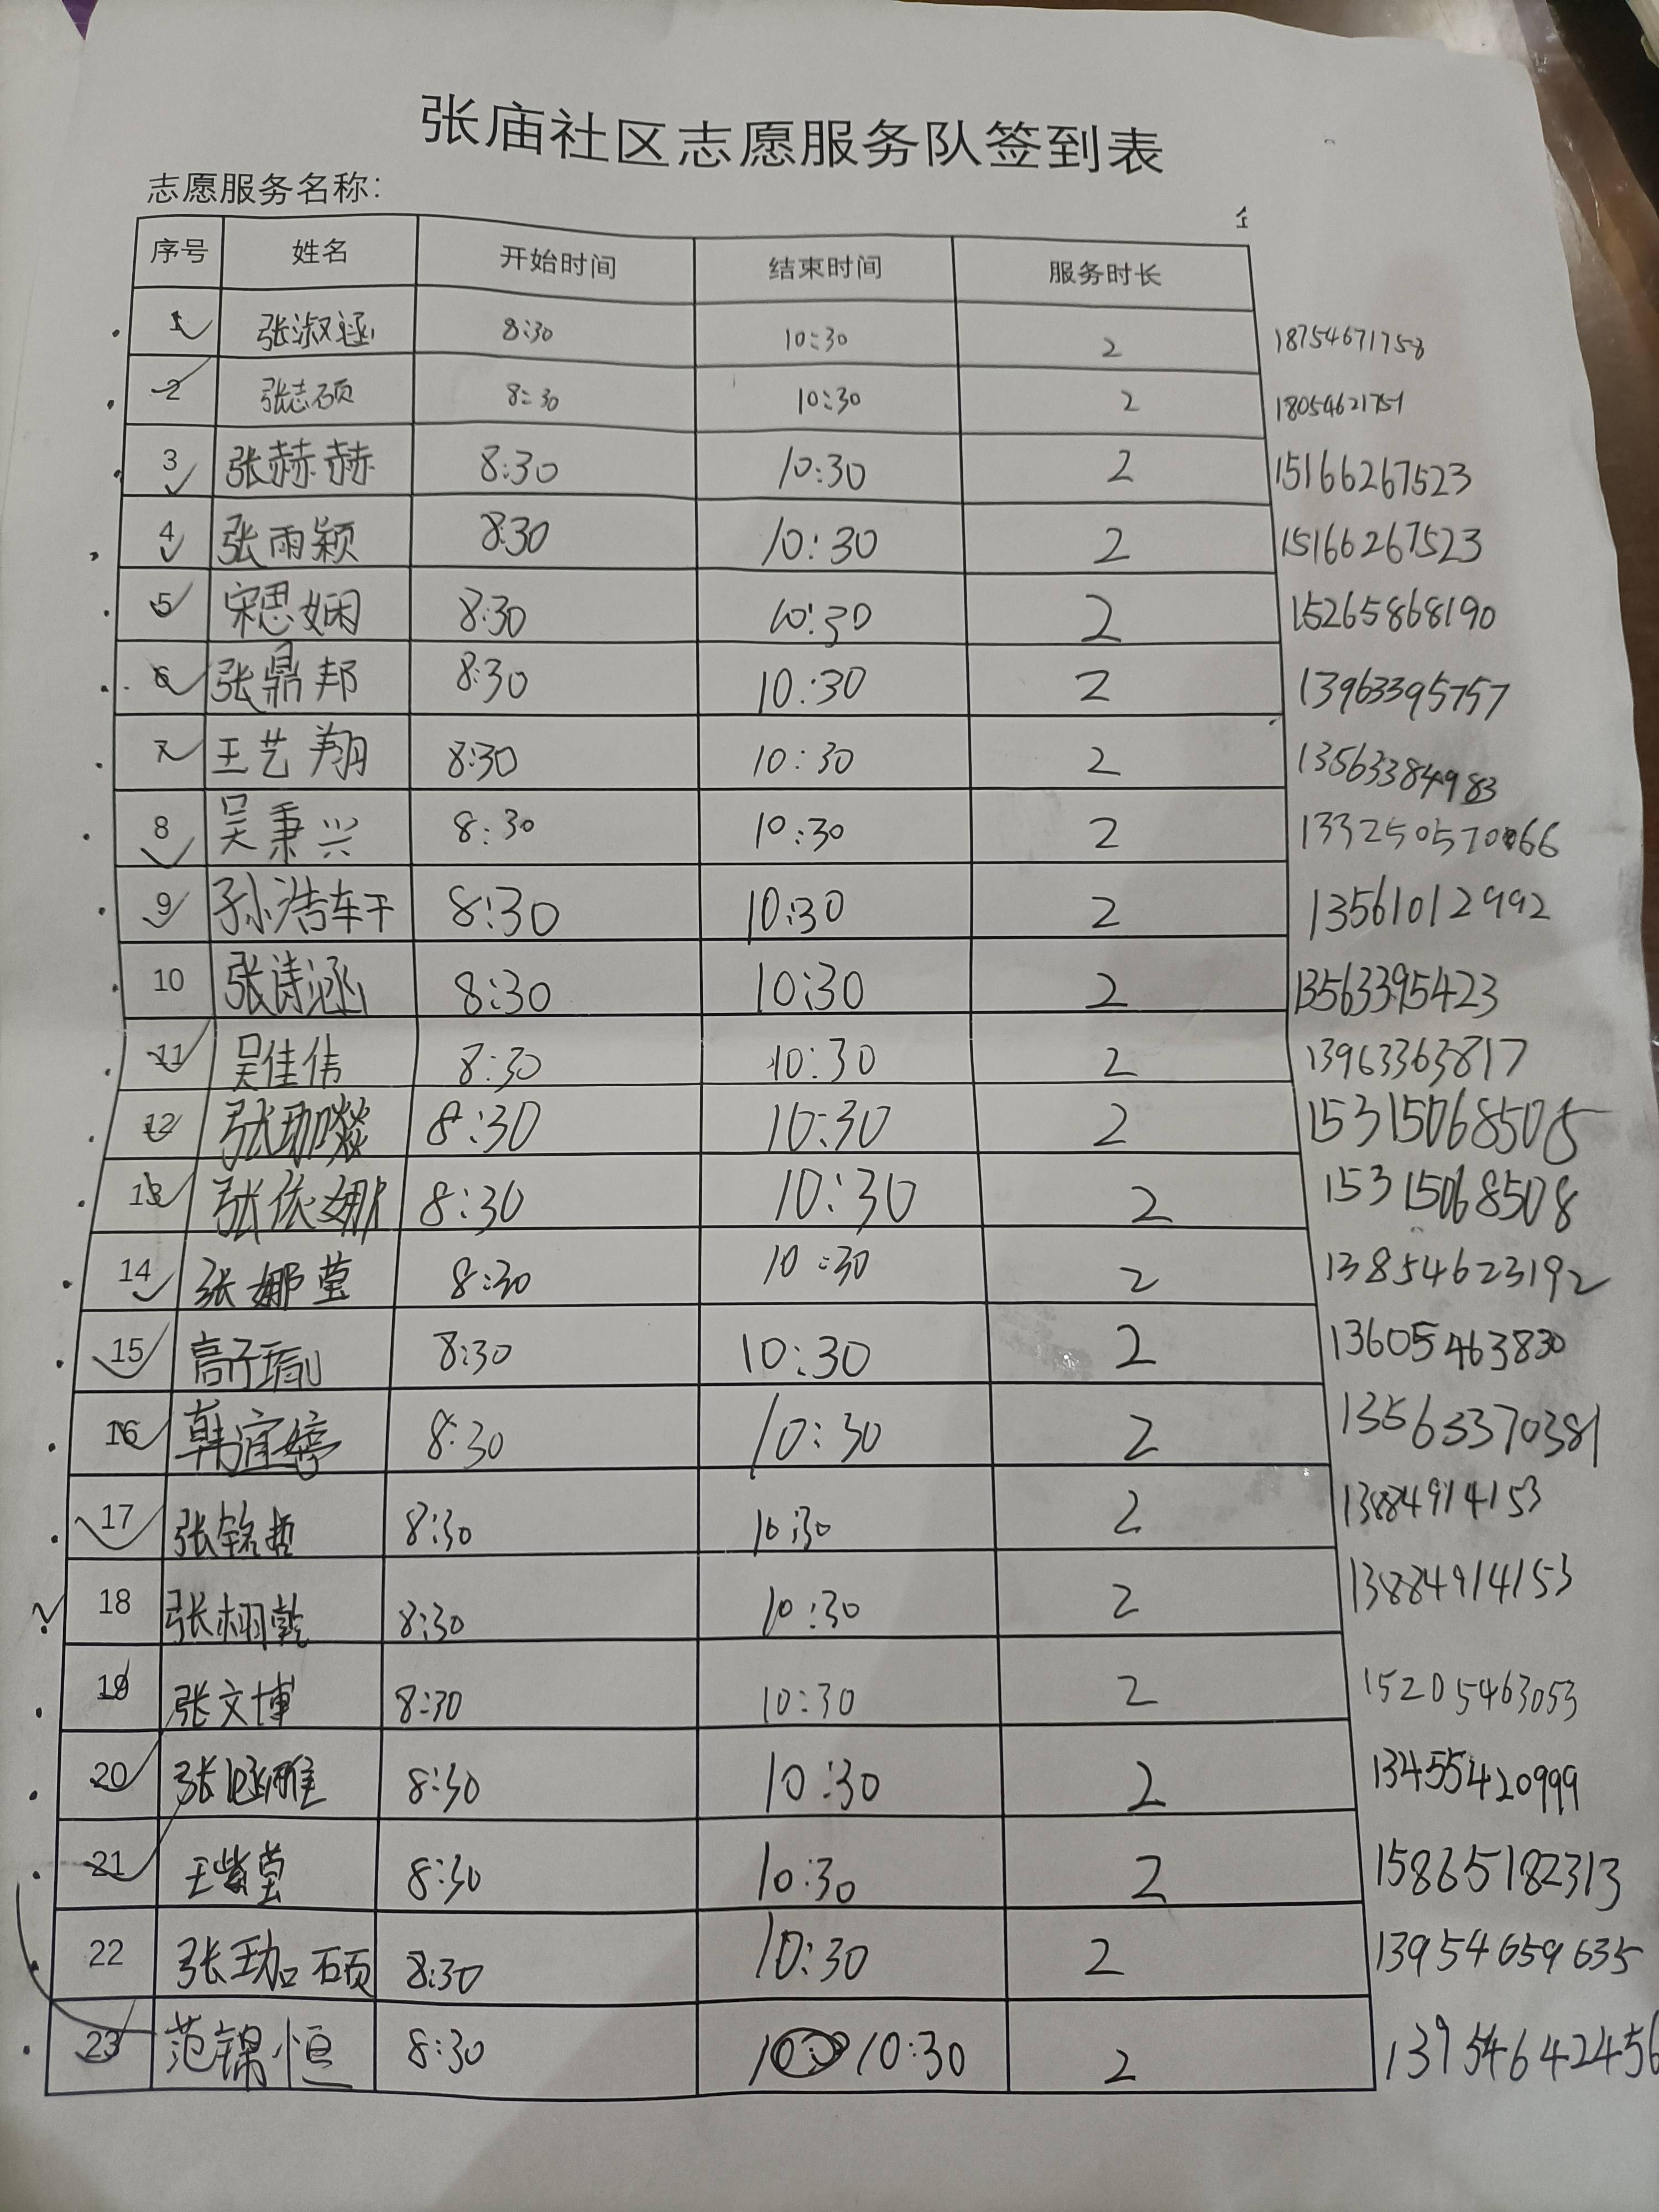 张庙社区志愿服务队签到表
志愿服务名称：
序号 姓名 开始时间 结束时间 服务时长
1 张淑涵 8:30 10:30 2 18754671758
2 张志硕 8:30 10:30 2 18054621751
3 张赫赫 8:30 10:30 2 15166267523
4 张雨颖 8:30 10:30 2 15166267523
5 宋思娴 8:30 10:30 2 15265868190
6 张鼎邦 8:30 10:30 2 13963395757
7 王艺翔 8:30 10:30 2 13563384983
8 吴秉兴 8:30 10:30 2
9 孙浩轩 8:30 10:30 2 13561012992
10 张诗涵 8:30 10:30 2 13563395423
11 吴佳伟 8:30 10:30 2 13963363817
12 8:30 10:30 2 15315068508
13 张依娜 8:30 10:30 2 15315068508
14 张娜莹 8:30 10:30 2 13854623192
15 8:30 10:30 2 13605463830
16 韩宜婷 8:30 10:30 2 13563370381
17 张铭哲 8:30 10:30 2 13884914153
18 张栩乾 8:30 10:30 2 13884914153
19 张文博 8:30 10:30 2 15205463053
20 8:30 10:30 2 13455420999
21 王紫莹 8:30 10:30 2 15865182313
22 张珈硕 8:30 10:30 2 13954659635
23 范锦恒 8:30 10:30 2 13954642456